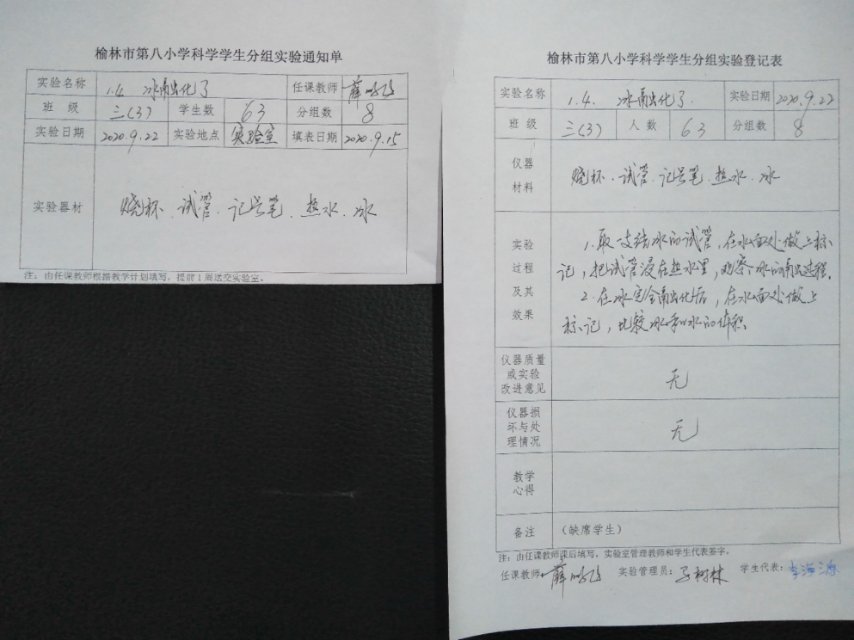 榆林市第八小学科学学生分组实验通知单
实验名称 1.4 冰融化了 任课教师
班 级 三(3) 学生数 63 分组数 8
实验日期 2020.9.22 实验地点 实验室 填表日期 2020.9.15
实验器材 烧杯、试管、记号笔、热水、冰
注：由任课教师根据教学计划填写，提前1周送交实验室。
榆林市第八小学科学学生分组实验登记表
实验名称 1.4. 冰融化了. 实验日期 2020.9.22
班 级 三(3) 人 数 63 分组数 8
仪器
材料
烧杯、试管、记号笔、热水、冰
实验
过程
及其
效果
1.取一支结冰的试管，在水面处做上标
记，把试管浸在热水里，观察冰的融化过程.
2.在冰完全融化后，在水面处做上
标记，比较冰和水的体积
仪器质量
或实验
改进意见
无
仪器损
坏与处
理情况
无
教学
心得
备注 （缺席学生）
注：由任课教师课后填写，实验室管理教师和学生代表签字。
任课教师： 实验管理员： 学生代表：